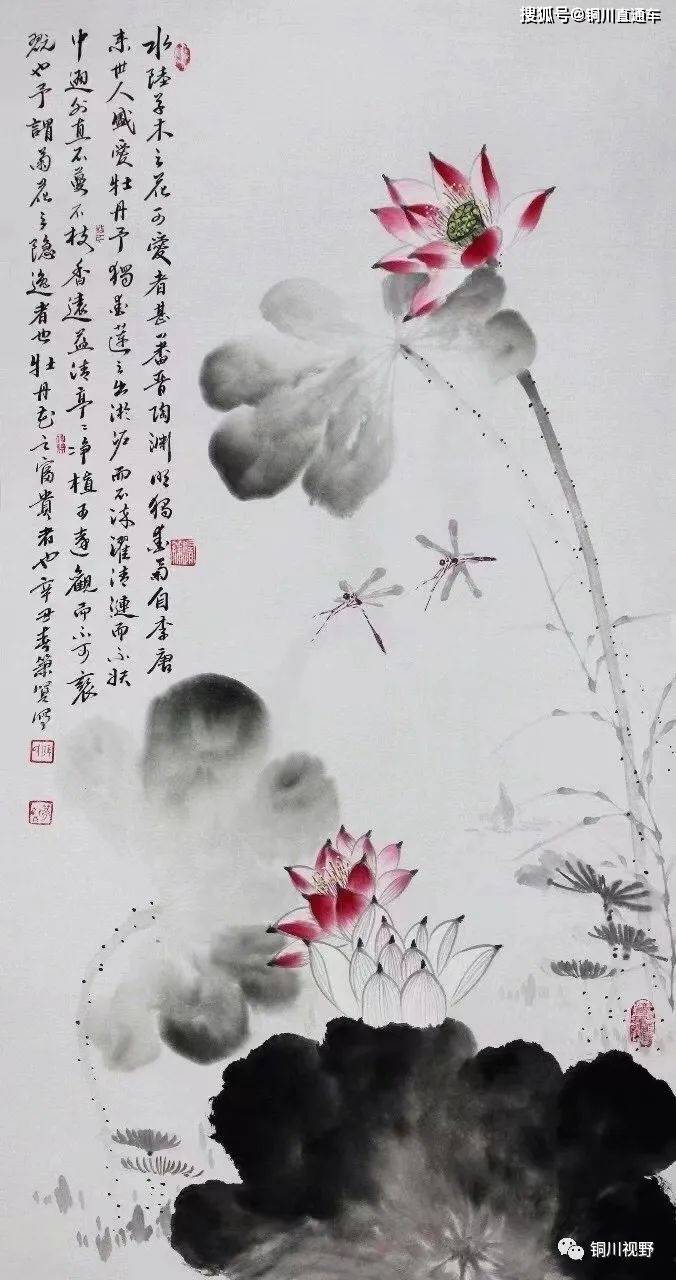 搜狐号@铜川直通车
水陸草木之花可愛者甚蕃晋陶渊明獨愛菊自李唐
来世人盛愛牡丹予獨愛蓮之出淤泥而不染濯清漣而不妖
中通外直不蔓不枝香遠益清亭〻净植可遠觀而不可褻
翫也予謂菊花之隐逸者也牡丹花之富貴者也辛丑春
铜川视野